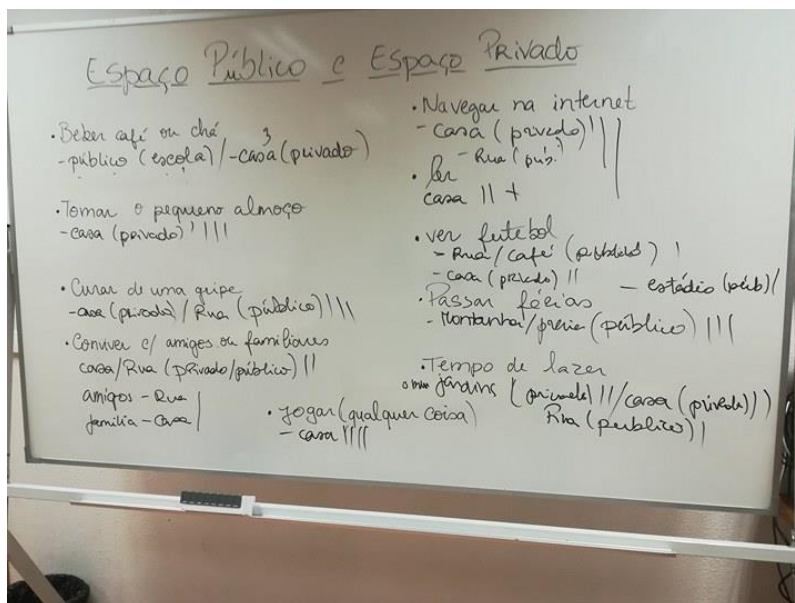 Espaço Público e Espaço Privado
• Beber café ou chá
- público (escola) / - casa (privado) 3
• Tomar o pequeno almoço
- casa (privado) ||||
• Curar de uma gripe
- casa (privado) / Rua (público) ||||
• Conviver c/ amigos ou familiares
casa/Rua (privado/público) ||
amigos - Rua |
família - Casa |
• Jogar (qualquer coisa)
- casa ||||
• Navegar na internet
- casa (privado) |||
- Rua (púb.)
• ler
casa || +
• ver futebol
- Rua / café (público) |
- casa (privado) || - estádio (púb) /
• Passar férias
- Montanha / praia (público) |||
• Tempo de lazer
jardins (privado) || / casa (privado) ))
Rua (publico) |